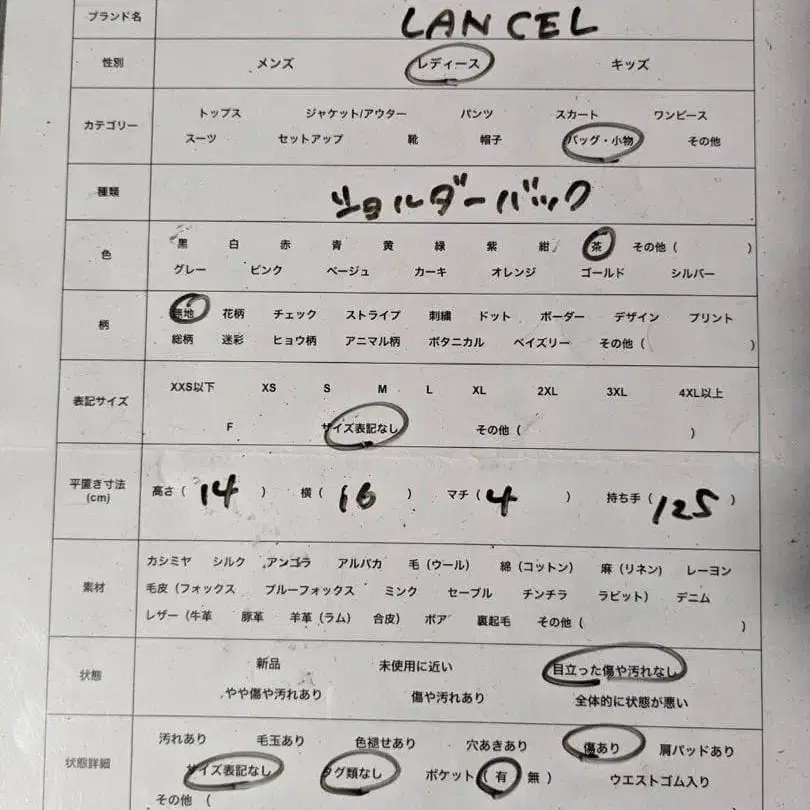 ブランド名 LANCEL
性別 メンズ レディース キッズ
カテゴリー
トップス ジャケット/アウター パンツ スカート ワンピース
スーツ セットアップ 靴 帽子 バッグ・小物 その他
種類 ショルダーバック
色
黒 白 赤 青 黄 緑 紫 紺 茶 その他 ( )
グレー ピンク ベージュ カーキ オレンジ ゴールド シルバー
柄
無地 花柄 チェック ストライプ 刺繍 ドット ボーダー デザイン プリント
総柄 迷彩 ヒョウ柄 アニマル柄 ボタニカル ペイズリー その他 ( )
表記サイズ
XXS以下 XS S M L XL 2XL 3XL 4XL以上
F サイズ表記なし その他 ( )
平置き寸法
(cm)
高さ ( 14 ) 横 ( 16 ) マチ ( 4 ) 持ち手 ( 125 )
素材
カシミヤ シルク アンゴラ アルパカ 毛 (ウール) 綿 (コットン) 麻 (リネン) レーヨン
毛皮 (フォックス ブルーフォックス ミンク セーブル チンチラ ラビット) デニム
レザー (牛革 豚革 羊革 (ラム) 合皮) ボア 裏起毛 その他 ( )
状態
新品 未使用に近い 目立った傷や汚れなし
やや傷や汚れあり 傷や汚れあり 全体的に状態が悪い
状態詳細
汚れあり 毛玉あり 色褪せあり 穴あきあり 傷あり 肩パッドあり
サイズ表記なし タグ類なし ポケット ( 有 無 ) ウエストゴム入り
その他 (